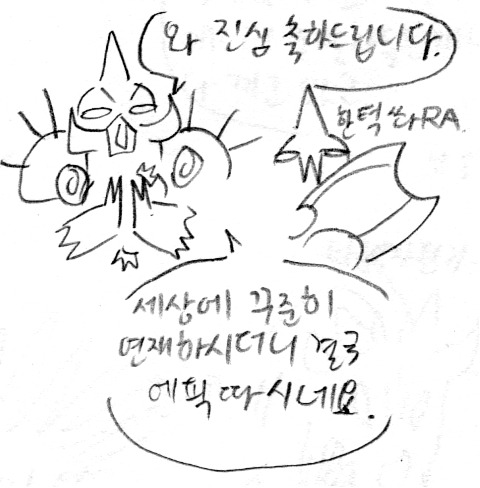 와 진심 축하드립니다.
한턱 쏴RA
세상에 꾸준히
연재하시더니 결국
에픽 따시네요.